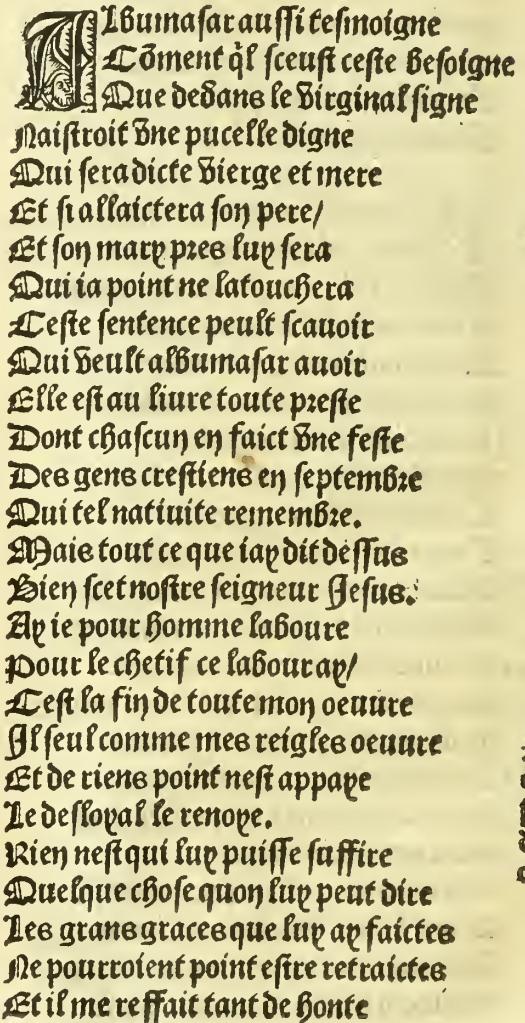 Albumasar aussi tesmoigne
Cõment q̃l sceust ceste besoigne
Que dedans le virginal signe
Naistroit vne pucelle digne
Qui sera dicte vierge et mere
Et si allaictera son pere/
Et son mary pres luy sera
Qui ia point ne latouchera
Ceste sentence peult scauoir
Qui veult albumasar auoir
Elle est au liure toute preste
Dont chascun en faict vne feste
Des gens crestiens en septembre
Qui tel natiuite remembre.
Mais tout ce que iay dit dessus
Bien scet nostre seigneur Jesus.
Ay ie pour homme laboure
Pour le chetif ce labour ay/
Cest la fin de toute mon oeuure
Il seul comme mes reigles oeuure
Et de riens point nest appaye
Le desloyal le renoye.
Rien nest qui luy puisse suffire
Quelque chose quon luy peut dire
Les grans graces que luy ay faictes
Ne pourroient point estre retraictes
Et il me reffait tant de honte